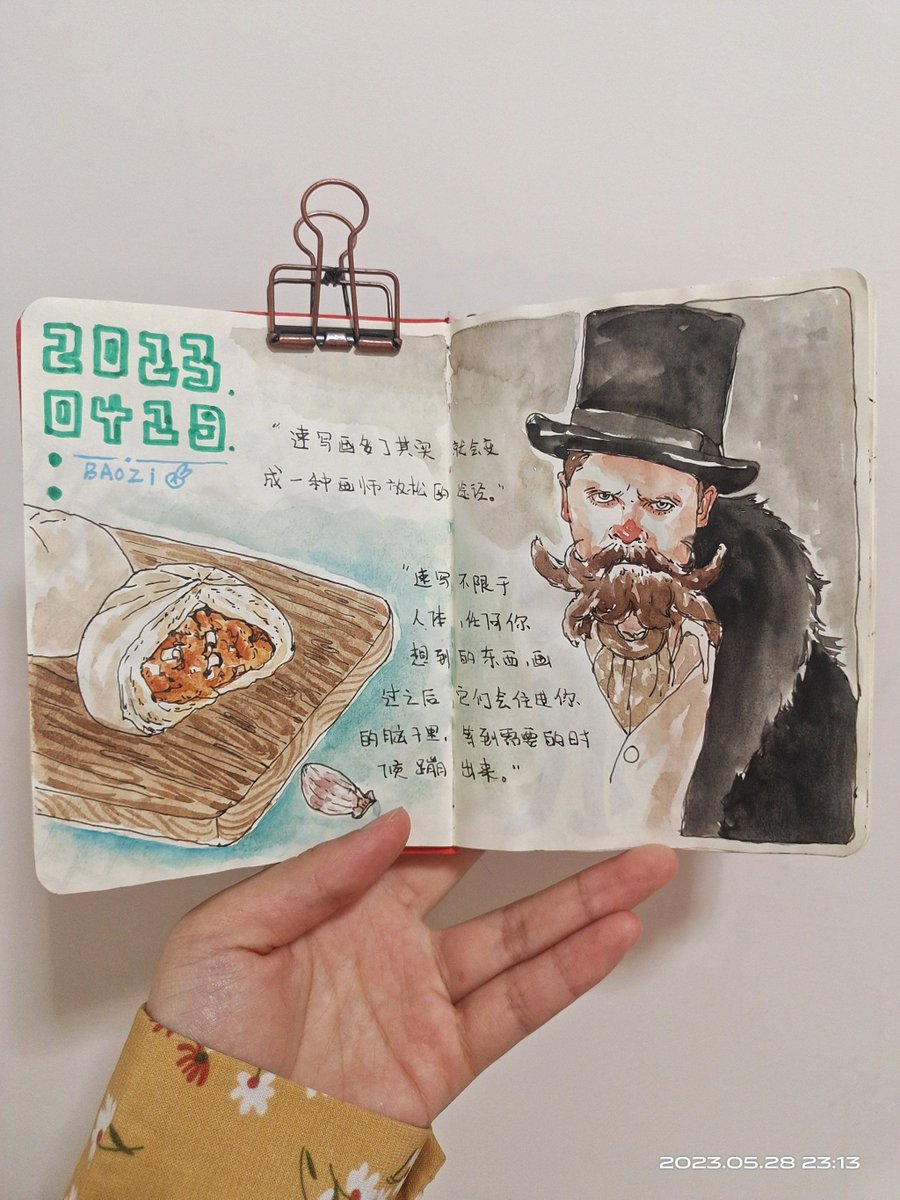 2023.
0419.
BAOZI
"速写画多了其实就会变
成一种画师放松的途径。"
"速写不限于
人体,任何你
想到的东西,画
过之后它们会住进你
的脑子里,等到需要的时
候蹦出来。"
2023.05.28 23:13